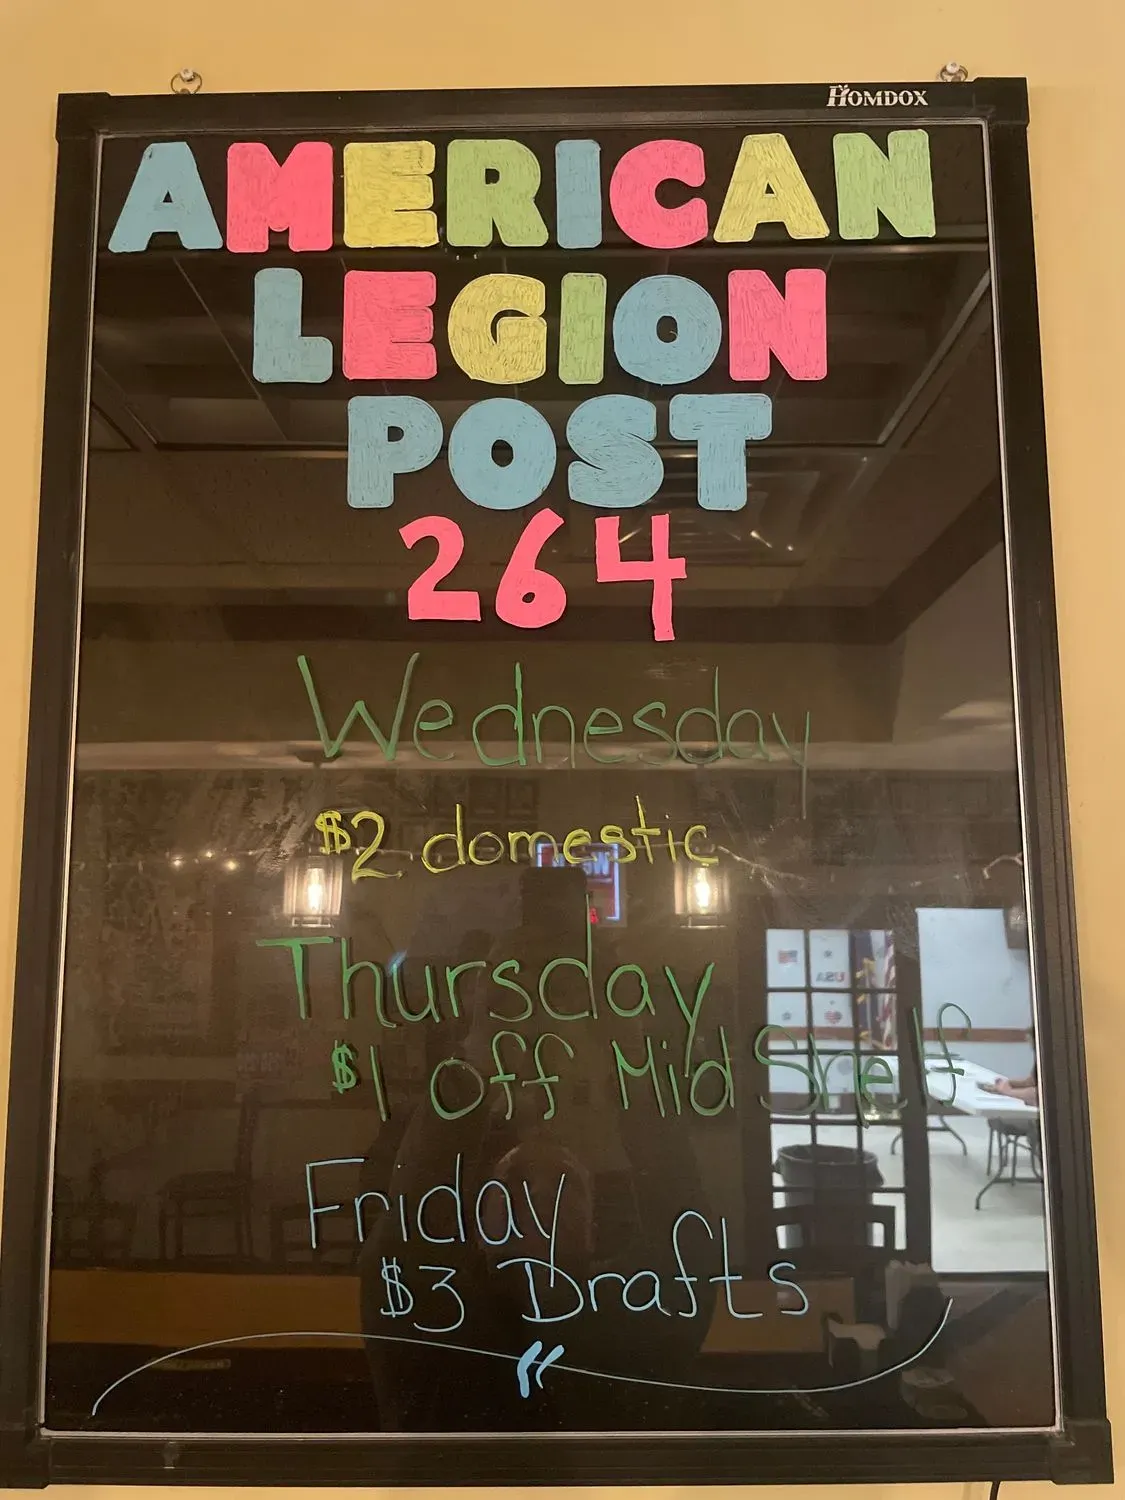 HOMDOX
AMERICAN
LEGION
POST
264
Wednesday
$2 domestic
Thursday
$1 off Mid Shelf
Friday
$3 Drafts
USA